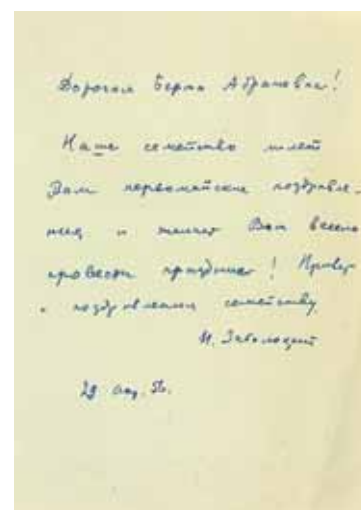 Дорогая Берта Абрамовна!
Наше семейство шлет
Вам первомайские поздравле-
ния и желает Вам весело
провести праздник! Привет
и поздравления семейству.
Н. Заболоцкий
29 апр. 56.